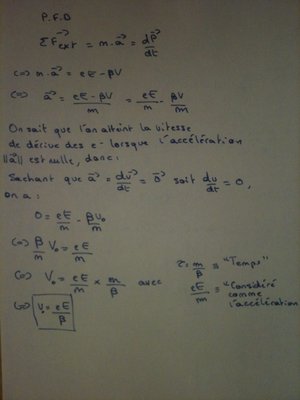 P.F.D
Σ F⃗ext = m·a⃗ = dp⃗/dt
(=) m·a⃗ = eE - βV
(=) a⃗ = (eE - βV)/m = eE/m - βV/m
On sait que l'on atteint la vitesse
de dérive des e- lorsque l'accélération
||a⃗|| est nulle, donc:
Sachant que a⃗ = dv⃗/dt = 0⃗ soit dv/dt = 0,
on a:
0 = eE/m - βV₀/m
(=) β/m V₀ = eE/m
(=) V₀ = eE/m × m/β avec
(=) V₀ = eE/β
τ = m/β ≡ "Temps"
eE/m ≡ "Considéré
comme
l'accélération"